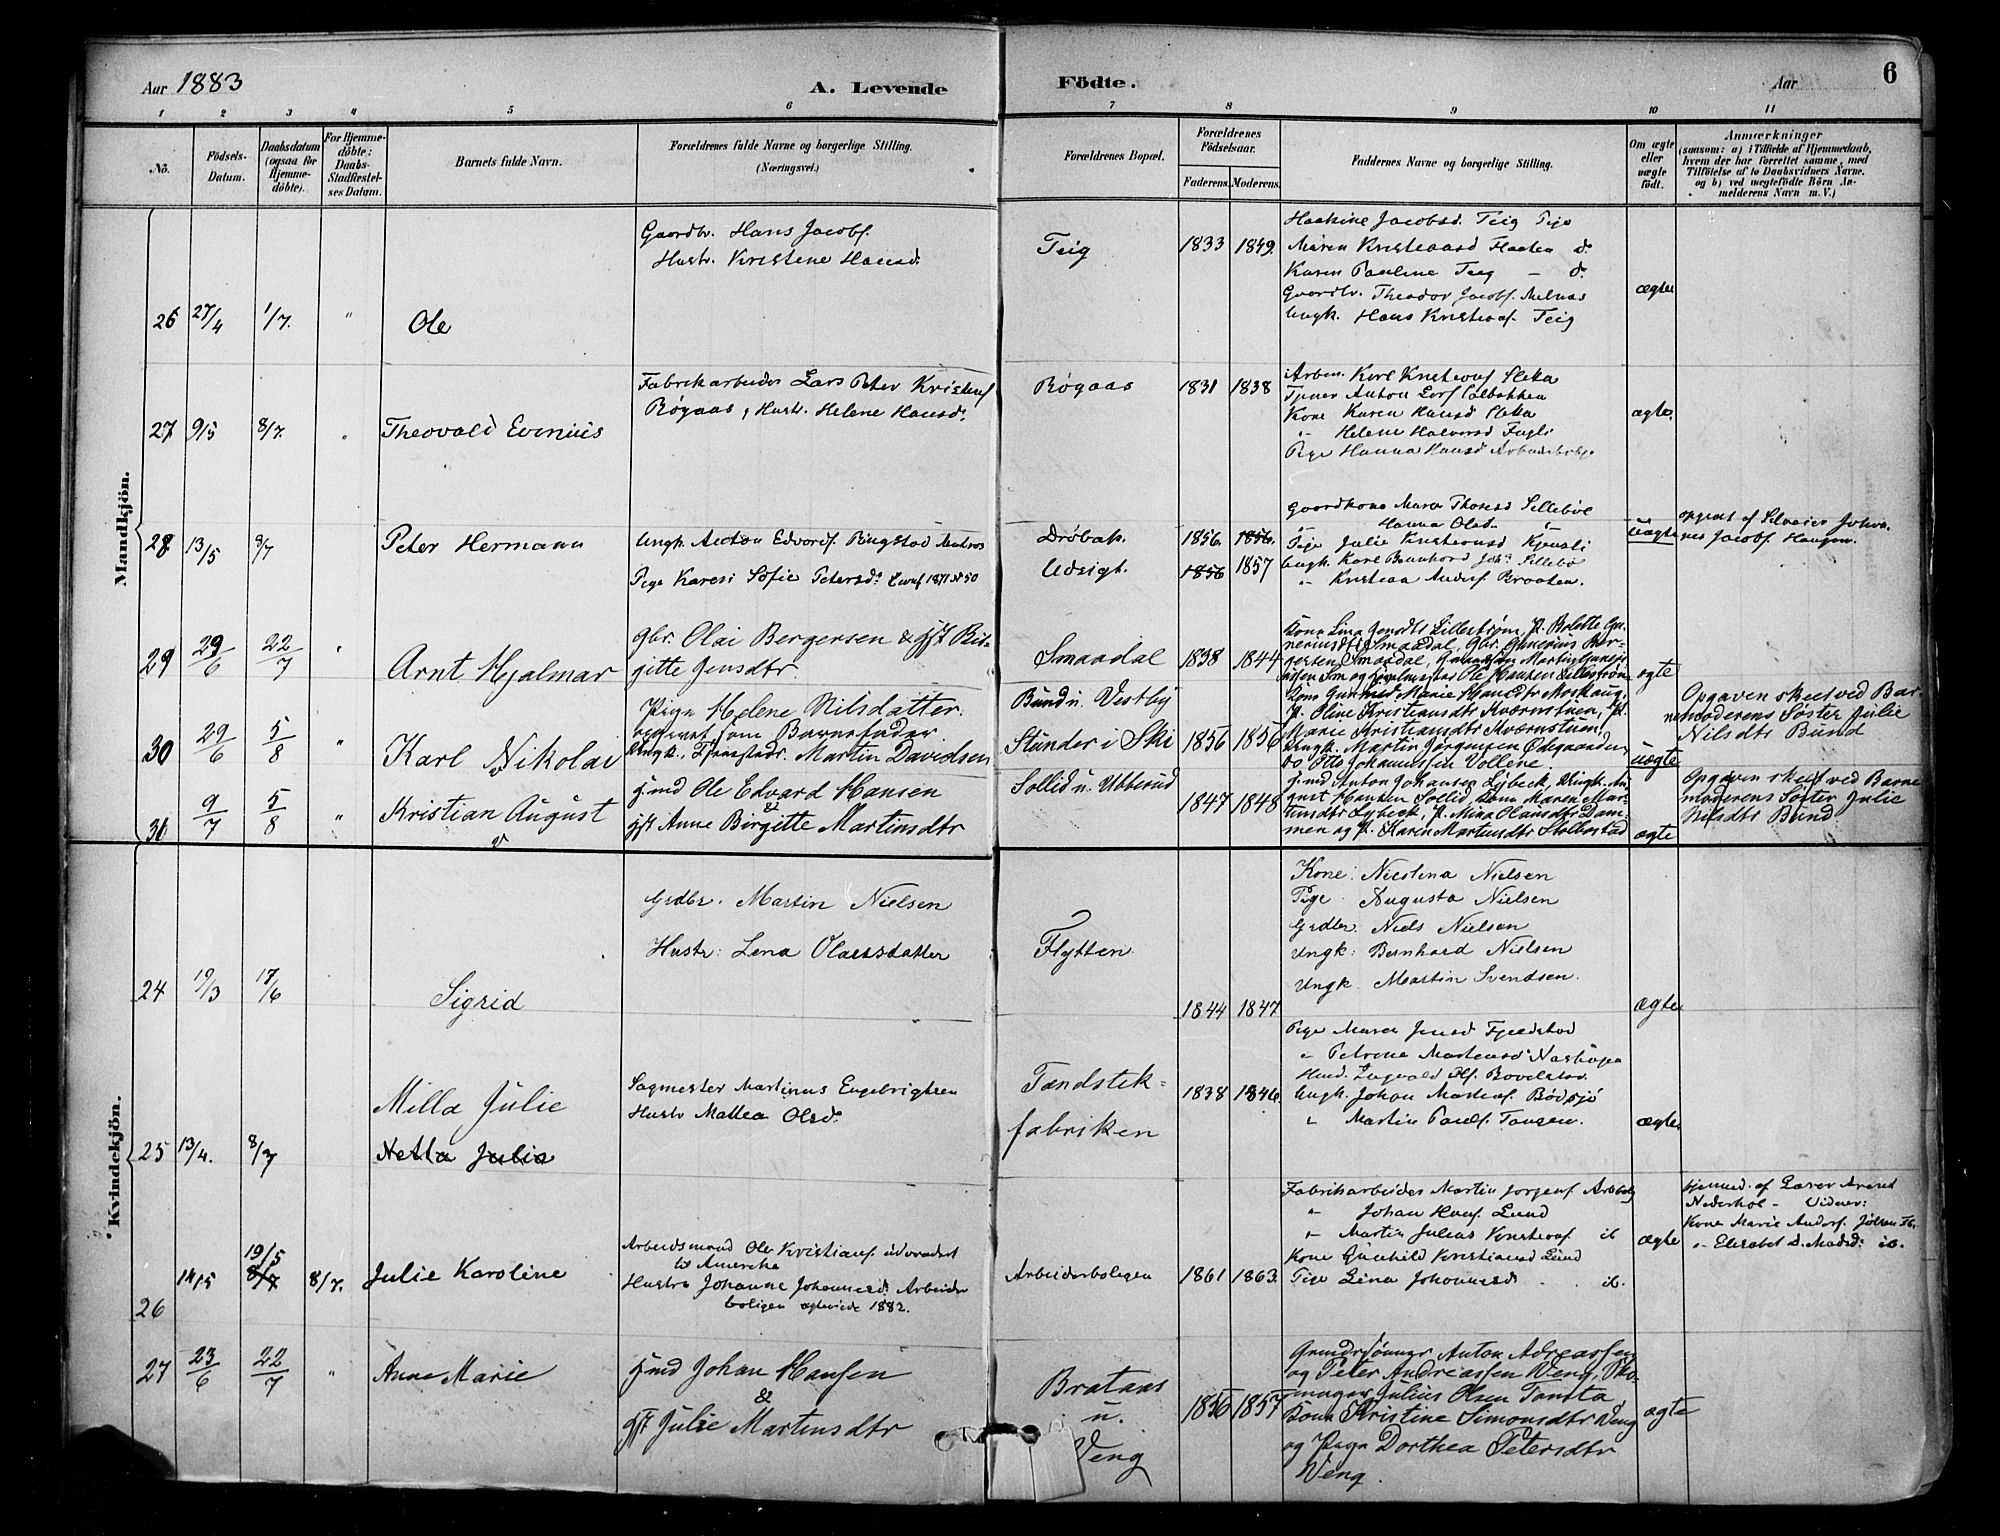 Aar 1883
A. Levende
Födte.
Aar
6
1 2 3 4 5 6 7 8 9 10 11
No.
Födsels-Datum.
Daabsdatum (ogsaa for Hjemme-döbte).
For Hjemme-döbte: Daabs-Stadfæstelses Datum.
Barnets fulde Navn.
Forældrenes fulde Navne og borgerlige Stilling.
(Næringsvei.)
Forældrenes Bopæl.
Forældrenes Födselsaar.
Faderens. Moderens.
Faddernes Navne og borgerlige Stilling.
Om ægte eller uægte födt.
Anmærkninger
(saasom: a) i Tilfælde af Hjemmedaab,
hvem der har forrettet samme, med
Tilföielse af to Daabsvidners Navne,
og b) ved uægtefödte Börn An-
melderens Navn m. V.)
Mandkjön.
26 27/4 1/7. " Ole
Gaardbr. Hans Jacobs.
Hustr. Kristene Hansd.
Teig
1833 1849.
Haakine Jacobsd. Teig Pige
Maren Flaaten d.
Karen Pauline Teig - d.
Gaardbr. Theodor Jacobs.
Ungk. Hans Teig
ægte
27 9/5 8/7. " Theovald Evenius
Fabrikarbeider Lars Peter Kristens
Røgaas, Hustr. Helene Hansd.
Røgaas
1831 1838
Arbm. Karl Sletta
Tjener Anton
Kone Karen Hansd Sletta
" Helene Halvorsd
Pige Hanna Hansd
ægte.
28 13/5 8/7 Peter Hermann
Ungk. Anton Edvards. Ringstad
Pige Karesi Sofie Petersd.
Drøbak.
Udsigt.
1856. 1856.
1856 1857
Gaardkone Maren Sillebøl
Hanna Olsd. "
Pige Julie
Ungk. Karl Bernhard Johs Sillebø
" Anders. Braaten.
uægte
opgivet af
Jacobs. Haugen.
29 29/6 22/7 " Arnt Hjalmar
gbr. Olai Bergersen & gft Bir-
gitte Jensdtr.
Smaadal
1838 1844
Kone Lina Jensdtr Lillestrøm, P. Bolette Gu-
Smaadal, Gbr. Gunerius Ber-
gersen Smaadal,
Ole Hansen Lillestrøm
ægte
30 29/6 5/8 " Karl Nikolai
Pige Helene Nilsdatter.
opgivet som Barnefader
Ungk. Martin Davidsen
Bund u. Vestby
Stunder i Ski
1856 1856
Kone Marie
P. Oline Kristiansdtr Kværnstuen, P.
Marie Kristiansdtr Kværnstuen,
Ungk. Martin Jørgensen Ødegaarden
do Otto Johannessen Vollene.
uægte
Opgaven skeet ved Bar-
nemoderens Søster Julie
Nilsdtr Bund
31 9/7 5/8 " Kristian August
Hmd Ole Edvard Hansen
&
gft Anne Birgitte Martinsdtr
Sollid u. Ubberud
1847 1848
Hmd Anton Johansen Lybeck, Ungk. Au-
gust Hansen Sollid, Kone Maren Mar-
tinsdtr Lybeck, P. Mina Olausdtr Dam-
men og P. Karen Martinsdtr
ægte
Opgaven skeet ved Barne
moderens Søster Julie
Nilsdtr Bund
Kvindekjön.
24 19/3 17/6 Sigrid
Grdbr. Martin Nielsen
Hustr: Lena Olausdatter
Flytten
1844 1847
Kone: Nicolina Nielsen
Pige Augusta Nielsen
Grdbr. Niels Nielsen
Ungk: Bernhard Nielsen
Ungk Martin Svendsen.
ægte
25 13/4. 8/7 Milla Julie
Netta Julie
Sagmester Martinus Engebrigtsen
Hustr Mathea Olsd.
Tændstik-
fabriken
1838 1846.
Pige Maren Jensd Fjeldstad
" Petrine
Husm. Ingvald
Ungk. Johan
" Martin Pauls. Tangen.
ægte
26 14/5 19/5 8/7 8/7. Julie Karoline
Arbeidsmand Ole Kristians. udvandret
til Amerika
Hustru Johanne Johannesd. Arbeider
boligen ægteviede 1882.
Arbeiderboligen
1861 1863.
Fabrikarbeider Martin Jørgens.
" Johan Hans. Lund
" Martin Julius ib
Kone Gunhild Kristiansd Lund
Pige Lina Johannesd - ib.
ægte
hjemmed. af Lærer
Vidner:
Kone Marie Anders.
" Elisabet D. Madsd: ib.
27 23/6 22/7 " Anne Marie
Hmd Johan Hansen
&
gft Julie Martinsdtr
Brataas
u.
Veng
1856 1857
Anton Adreassen
og Peter Andreassen Veng, Sko-
mager Julius Olsen Tomta,
Kone Kristine Simonsdtr Veng
og Pige Dorthea Petersdtr
Veng.
ægte